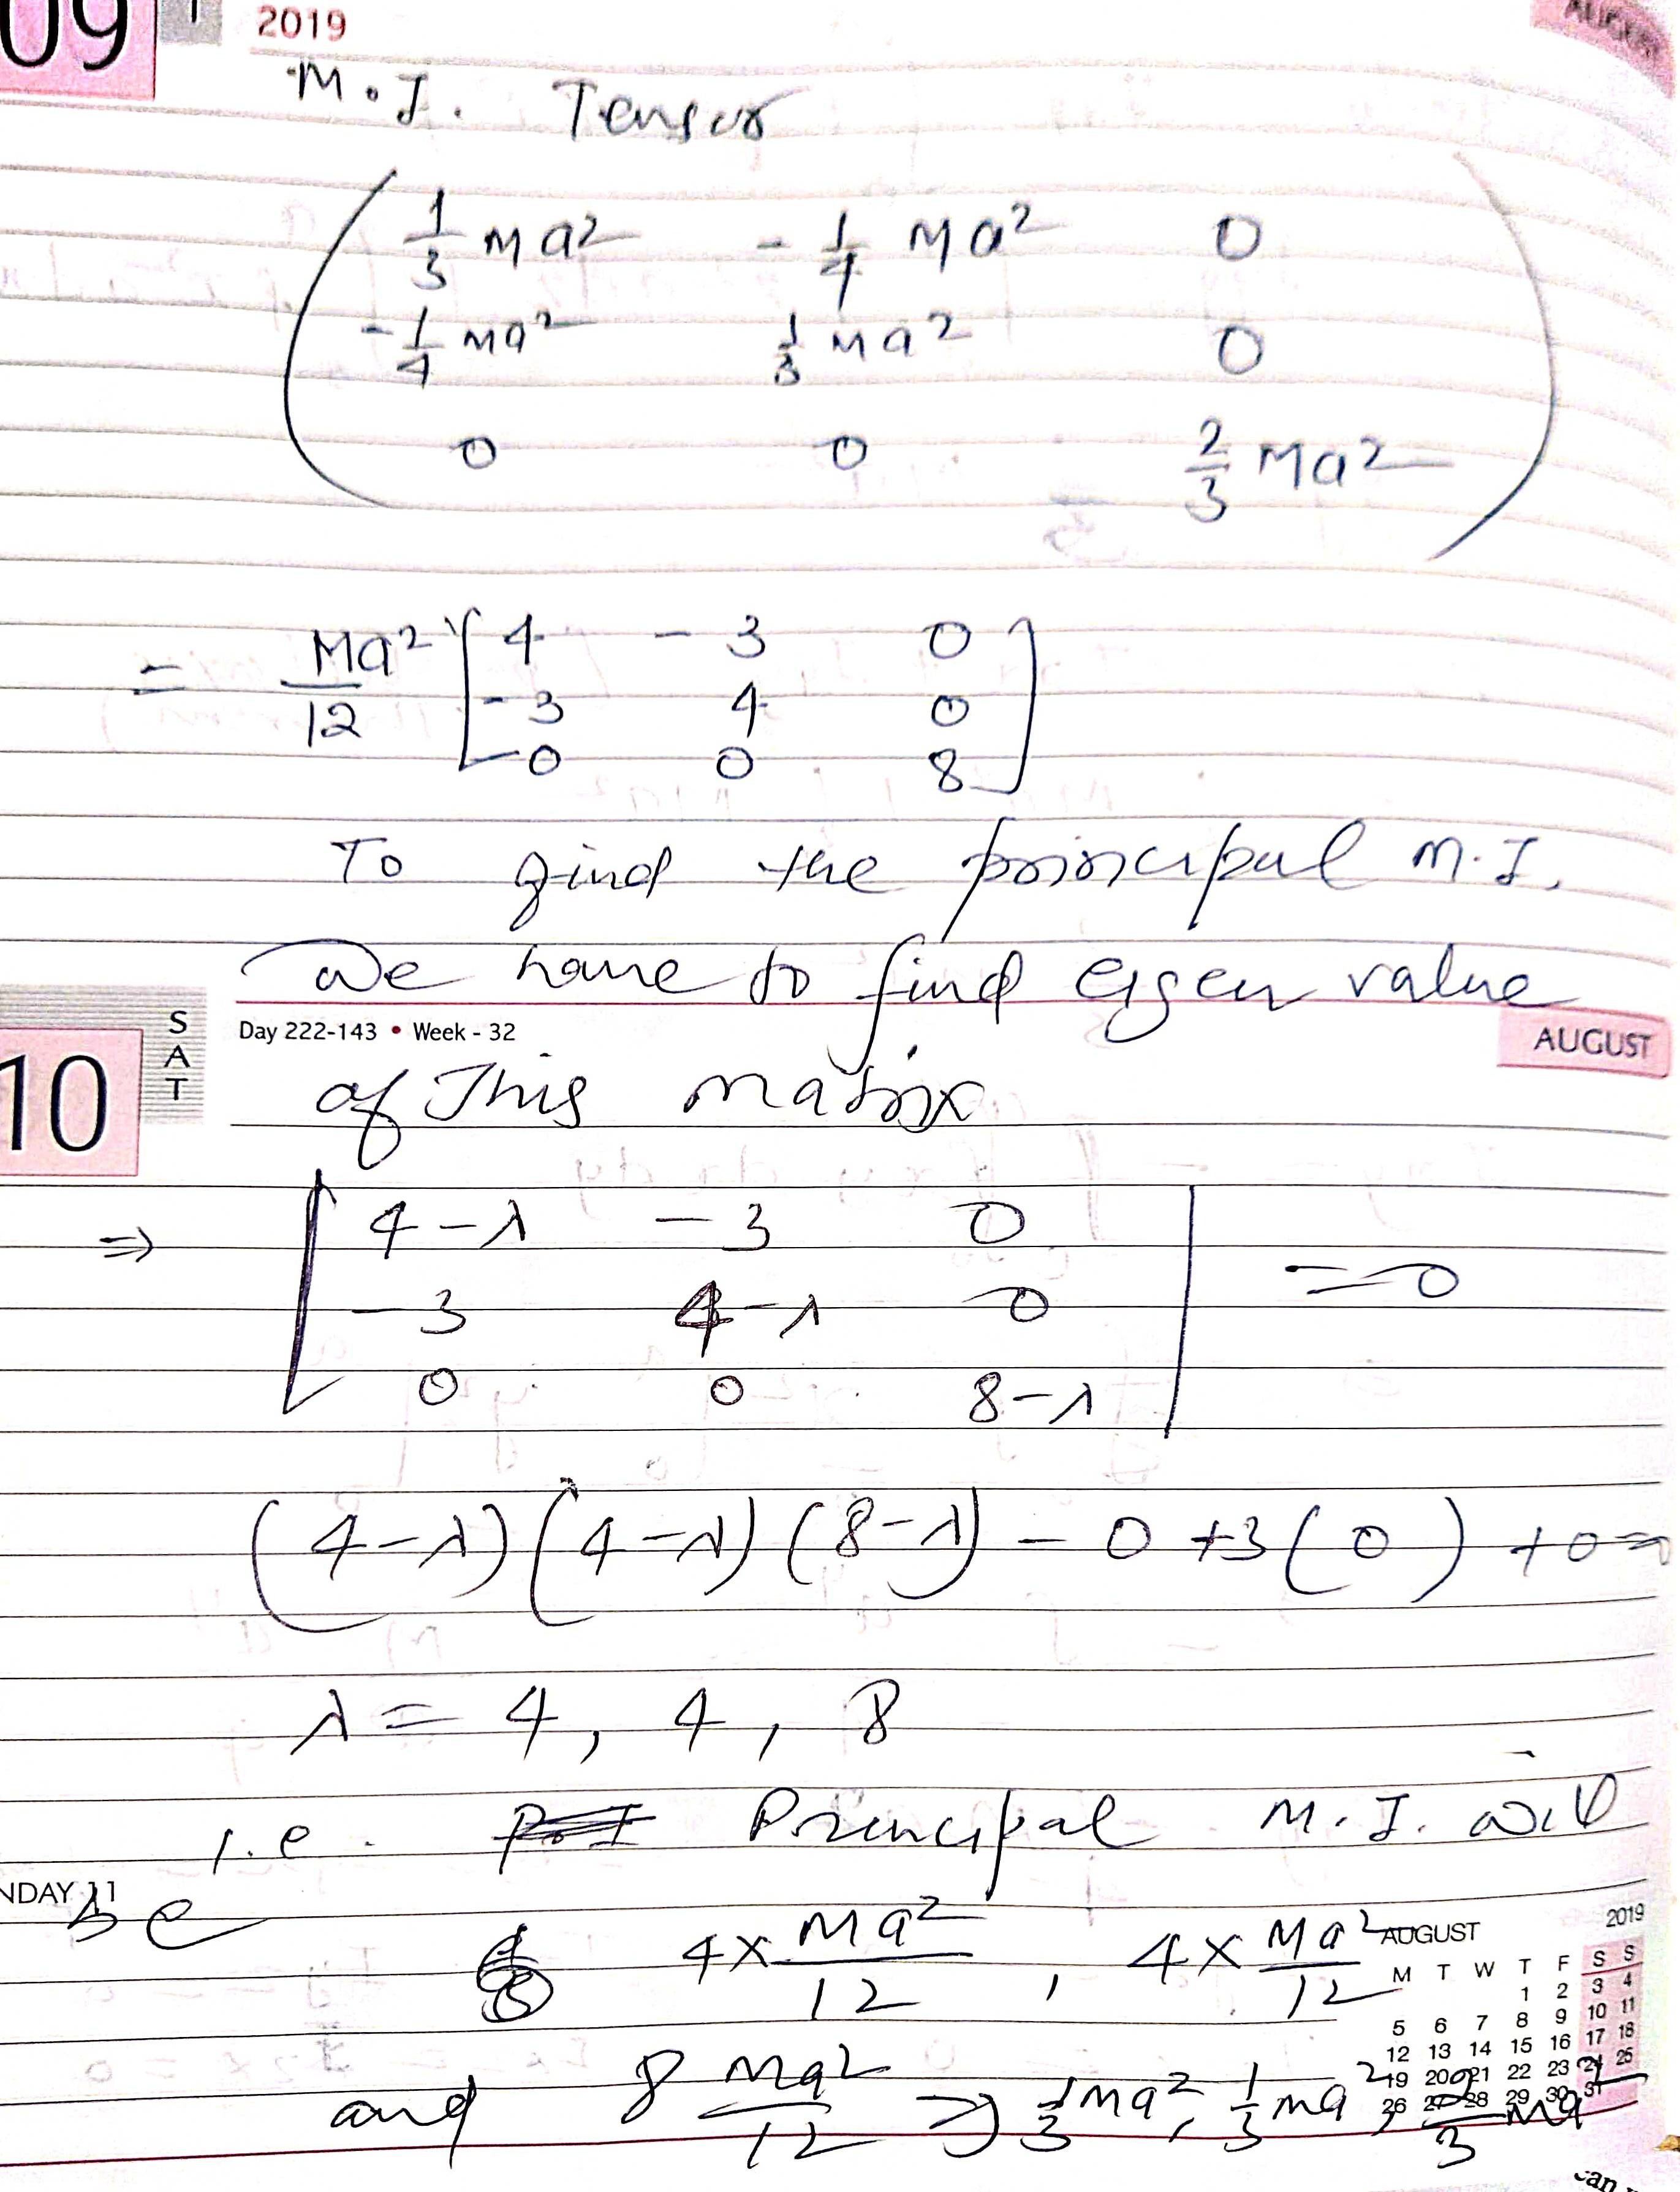 09
2019
AUGUST
M.I. Tensor
1/3 Ma² - 1/4 Ma² 0
-1/4 Ma² 1/3 Ma² 0
0 0 2/3 Ma²
= Ma²/12 [ 4 - 3 0
-3 4 0
0 0 8 ]
To find the principal M.I.
we have to find eigen value
SAT
Day 222-143 • Week - 32
AUGUST
10
of This matrix
⇒ | 4-λ -3 0 | = 0
-3 4-λ 0
0 0 8-λ
(4-λ)(4-λ)(8-λ) - 0 +3(0) +0=
λ = 4, 4, 8
i.e. Principal M.I. will
NDAY 11
be 4 × Ma²/12 , 4 × Ma²/12
and 8 Ma²/12 ⇒ 1/3 Ma², 1/3 Ma², 2/3 Ma²
AUGUST 2019
M T W T F S S
1 2 3 4
5 6 7 8 9 10 11
12 13 14 15 16 17 18
19 20 21 22 23 24 25
26 27 28 29 30 31